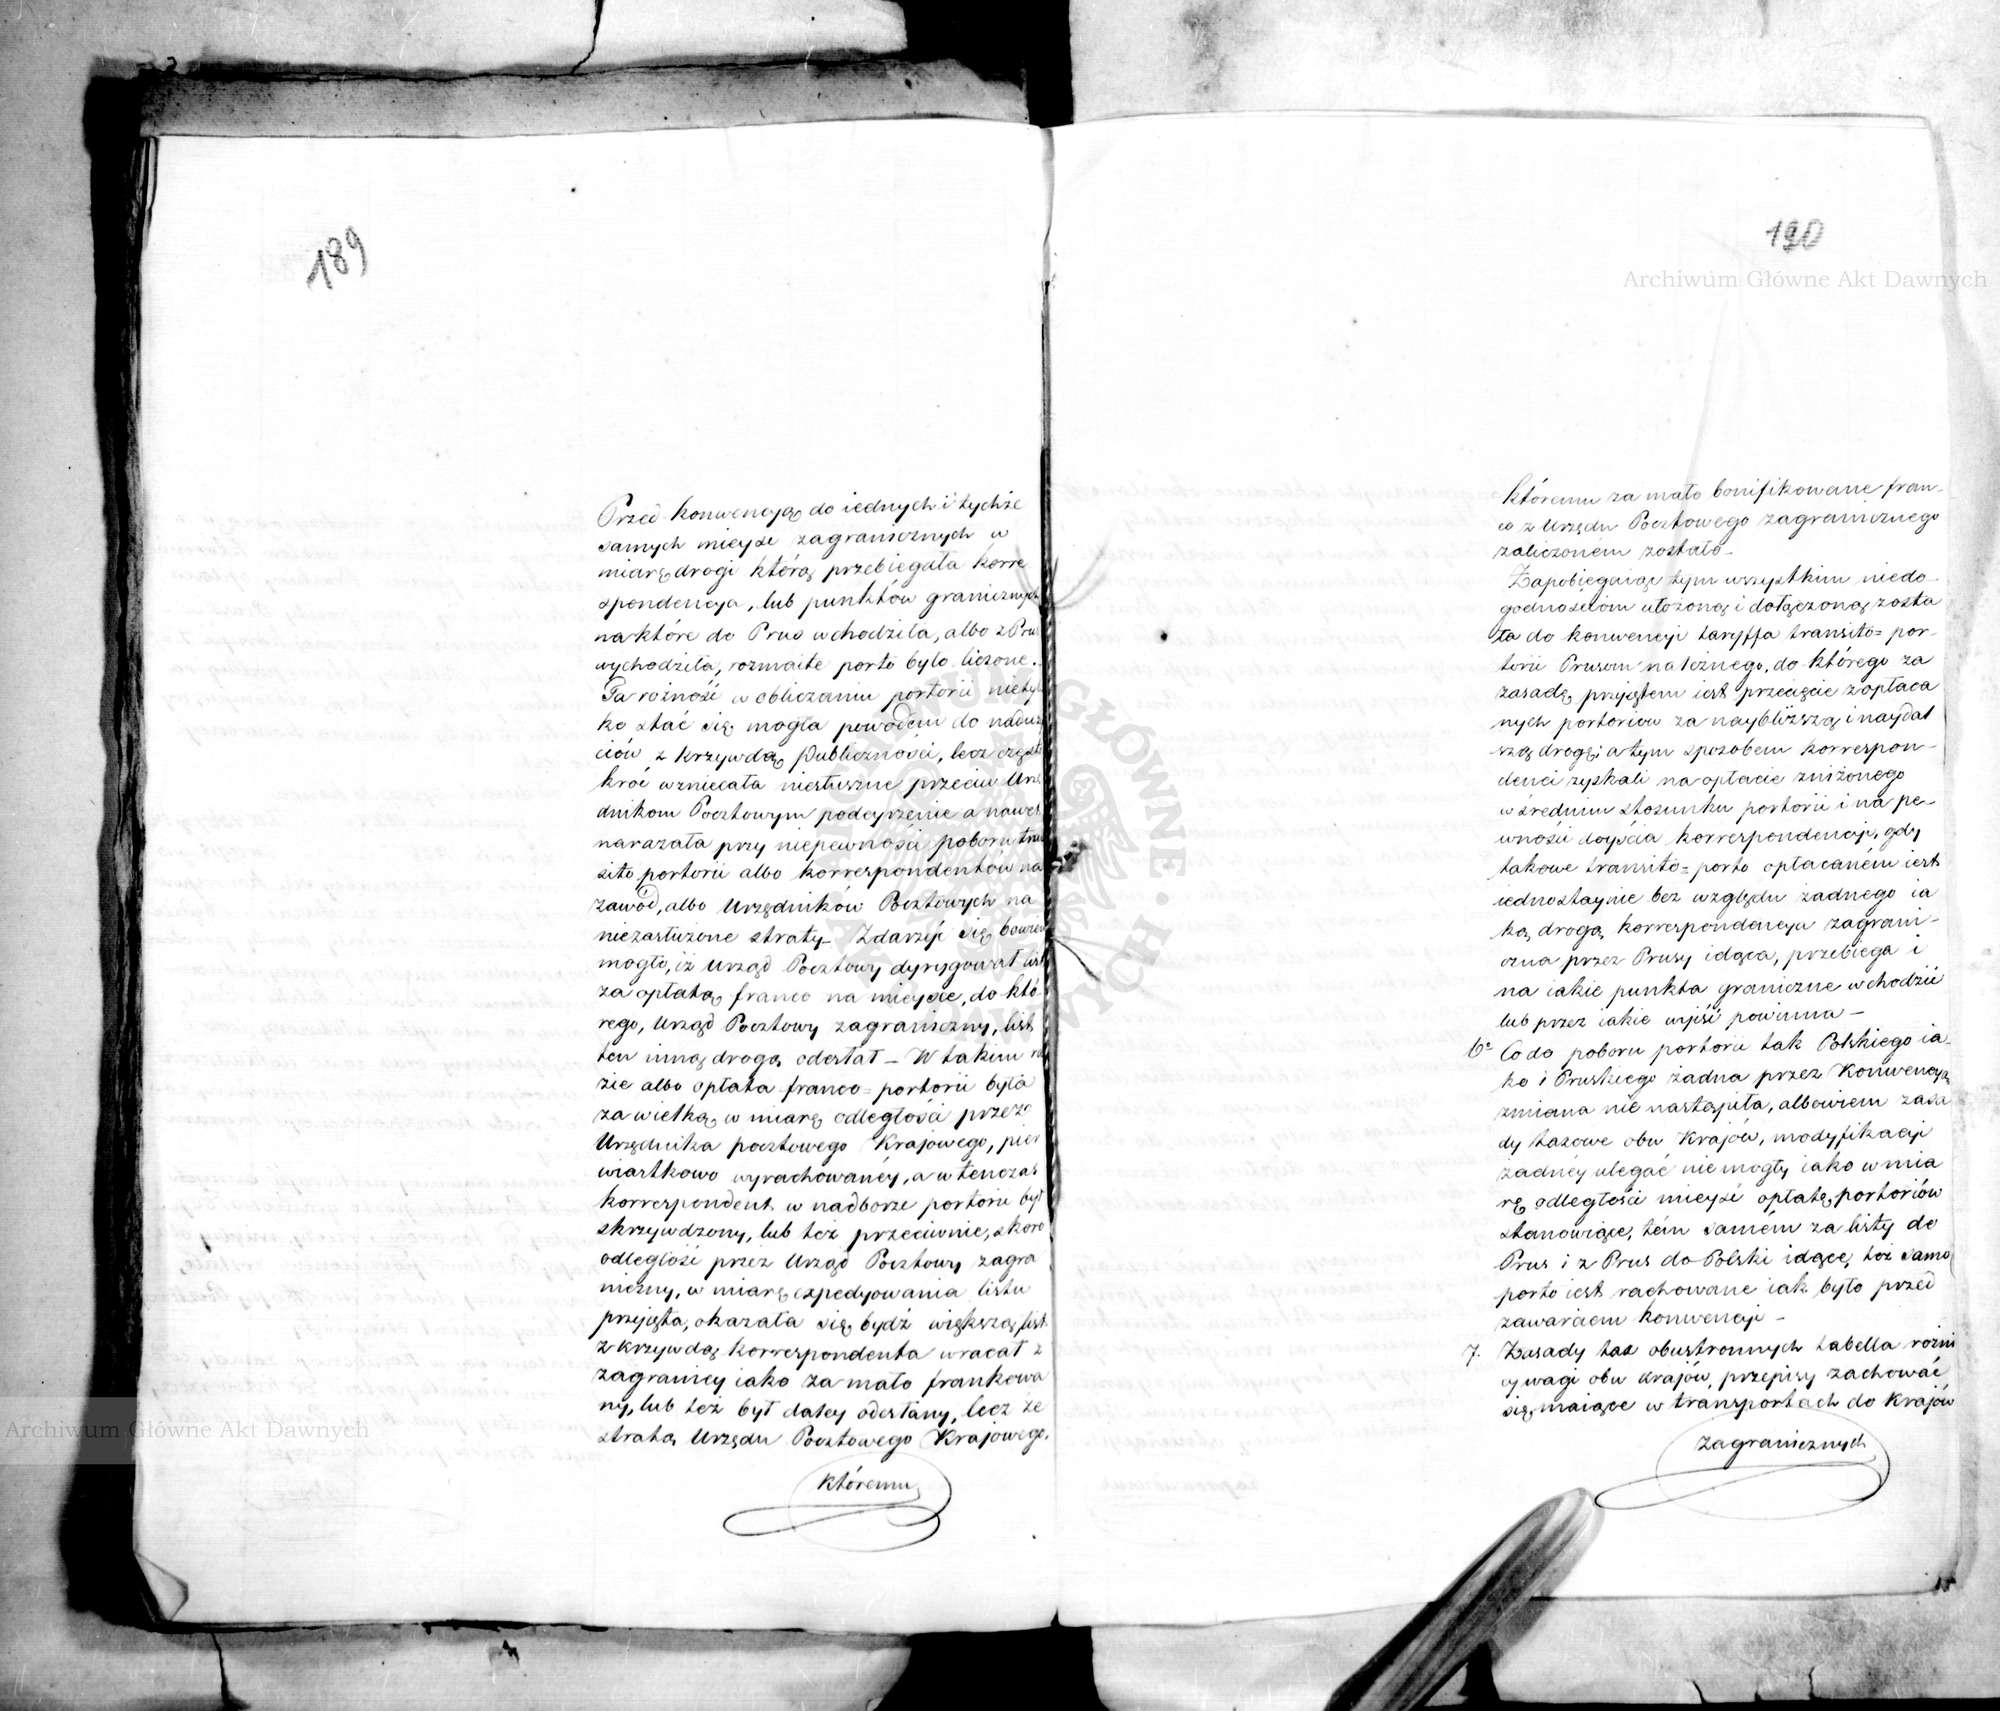 189
Przed konwencyą do iednych i tychże
samych mieysc zagranicznych w
miarę drogi którą przebiegała korre
spondencya, lub punktów granicznych
na które do Prus wchodziła, albo z Prus
wychodziła, rozmaite porto było liczone.
Ta rożność w obliczaniu portorii nietyl
ko stać się mogła powodem do naduży
ciów z krzywdą Publiczności, lecz często
kroć wzniecała niesłuszne przeciw Urzę
dnikom Pocztowym podeyrzenie a nawet
narażała przy niepewności poboru tran
sito portorii albo korrespondentów na
zawód, albo Urzędników Pocztowych na
niezasłużone straty – Zdarzyć się bowiem
mogło, iż Urząd Pocztowy dyrygował list
za opłatą franco na mieysce, do któ-
rego, Urząd Pocztowy zagraniczny, list
ten inną drogą odesłał – W takim ra
zie albo opłata franco = portorii była
za wielką w miarę odległości przez
Urzędnika pocztowego Krajowego, pier
wiastkowo wyrachowaney, a w tenczas
korrespondent w nadborze portorii był
skrzywdzony, lub też przeciwnie, skoro
odległość przez Urząd Pocztowy zagra
niczny, w miarę expedyowania listu
przyjęta, okazała się bydź większą list
z krzywdą korrespondenta wracał z
zagranicy iako za mało frankowa
ny, lub też był daley odesłany, lecz ze
stratą Urzędu Pocztowego Krajowego,
któremu
190
Archiwum Główne Akt Dawnych
któremu za mało bonifikowane fran-
co z Urzędu Pocztowego zagranicznego
zaliczoném zostało –
Zapobiegaiąc tym wszystkim niedo-
godnościom ułożoną i dołączoną zosta
ła do konwencyi taryffa transito = por-
torii Prusom należnego, do którego za
zasadę przyjętem iest przecięcie z opłaca
nych portoriow za naybliższą i naydal
szą drogę; a tym sposobem korrespon-
denci zyskali na opłacie zniżonego
w średnim stosunku portorii i na pe-
wności doyścia korrespondencyi, gdy
takowe transito = porto opłacaném iest
iednostaynie bez względu żadnego ia
ką drogą korrespondencya zagrani-
czna przez Prusy idąca, przebiega i
na iakie punkta graniczne wchodzić
lub przez iakie wyjść powinna –
6º Co do poboru portorii tak Polskiego ia-
ko i Pruskiego żadna przez Konwencyą
zmiana nie nastąpiła, albowiem zasa
dy taxowe obu Krajów, modyfikacyi
żadney ulegać nie mogły iako w mia
rę odległości mieysc opłatę portoriów
stanowiące, tém samém za listy do
Prus i z Prus do Polski idące, toż samo
porto iest rachowane iak było przed
zawarciem konwencyi –
7. Zasady tax obustronnych tabella różni
cy wagi obu krajów, przepisy zachować
się maiące w transportach do Krajów
zagranicznych
Archiwum Główne Akt Dawnych